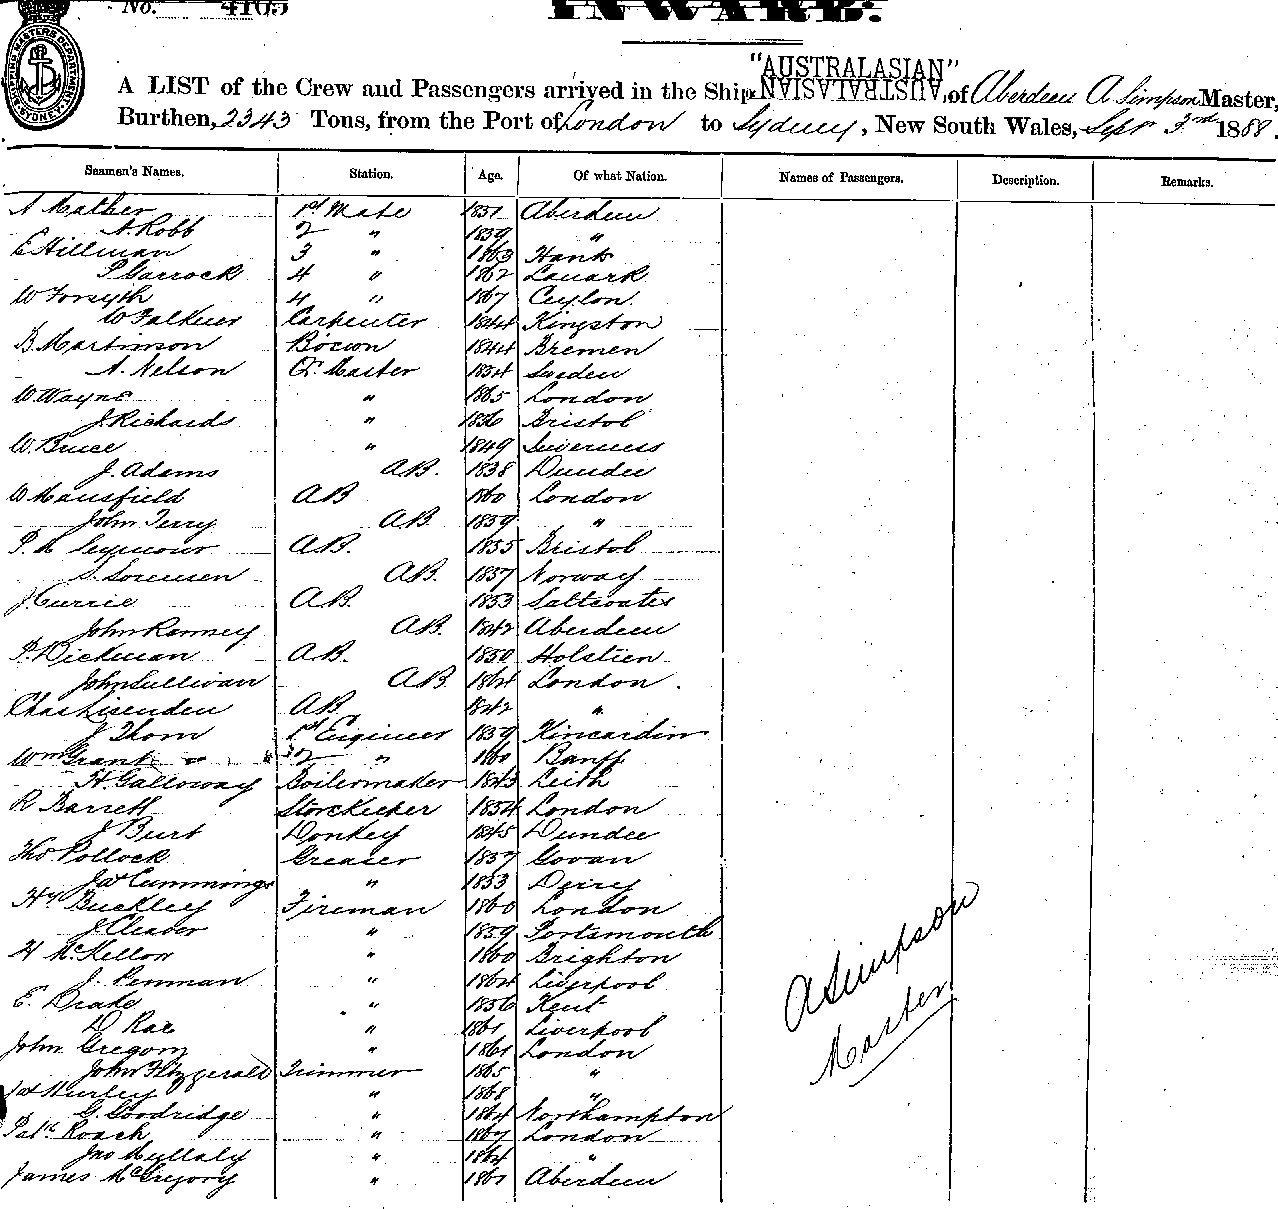 No. 4105
INWARD.
SHIPPING MASTERS DEPARTMENT SYDNEY
"AUSTRALASIAN"
A LIST of the Crew and Passengers arrived in the Ship AUSTRALASIAN, of Aberdeen A Simpson Master,
Burthen, 2343 Tons, from the Port of London to Sydney, New South Wales, Sept 3rd 1888.
Seamen's Names. Station. Age. Of what Nation. Names of Passengers. Description. Remarks.
A Mather 1st Mate 1851 Aberdeen
A. Robb 2 " 1859 "
E Hillman 3 " 1863 Hants
P Garrock 4 " 1862 Lanark
W Forsyth 4 " 1867 Ceylon
W Falkner Carpenter 1844 Kingston
B. Martinson Bosun 1844 Bremen
A. Nelson Qr Master 1854 Sweden
W. Wayne " 1865 London
J. Richards " 1856 Bristol
W. Bruce " 1849 Inverness
J. Adams A.B. 1838 Dundee
W Mansfield AB 1860 London
John Terry AB. 1859 "
P. M Seymour AB. 1855 Bristol
S. Sorensen AB. 1857 Norway
J Currie AB. 1853 Saltcoates
John Ramsey AB. 1842 Aberdeen
P. Dickman AB. 1850 Holstien
John Sullivan AB 1864 London
Chas Lisenden AB 1842 "
J Thom 1st Engineer 1859 Kincardin
Wm Grant 2 " 1860 Banff
H. Galloway Boilermaker 1843 Leith
R Barrett Storekeeper 1854 London
J Burt Donkey 1845 Dundee
Thos Pollock Greaser 1857 Govan
Jas Cummings " 1853 Derry
Hy Buckley Fireman 1860 London
J. Cleaver " 1859 Portsmouth
H McKellor " 1860 Brighton
J. Penman " 1864 Liverpool
E. Drake " 1856 Kent
D Rae " 1861 Liverpool
John Gregory " 1861 London
John Fitzgerald Trimmer 1865 "
Jas Hurley " 1868 "
G. Goodridge " 1864 Northampton
Patk Roach " 1867 London
Jno Mullaly " 1864 "
James McGregory " 1861 Aberdeen
A Simpson
Master